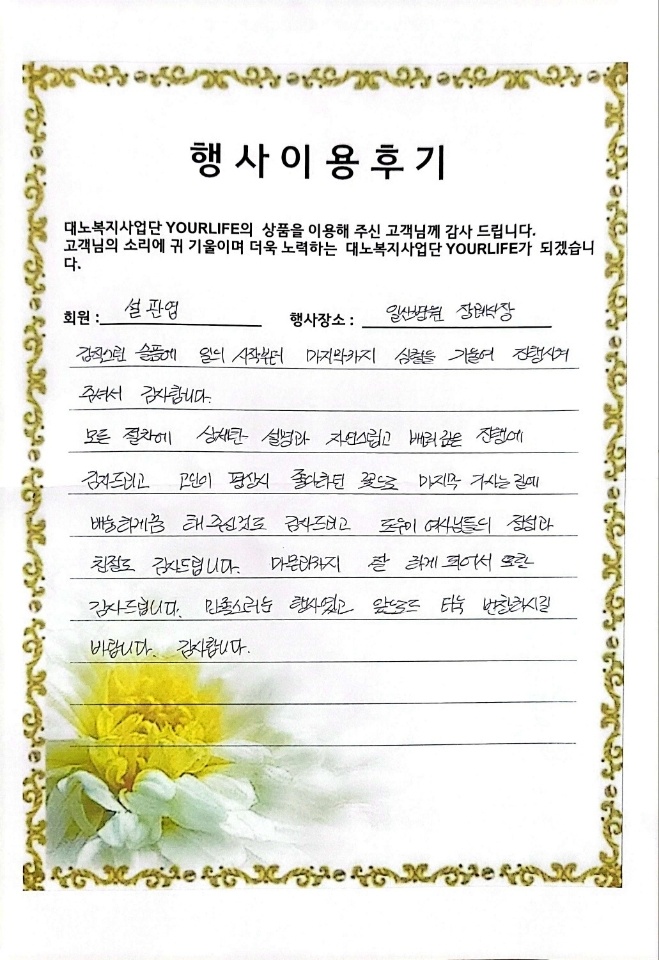 행사이용후기
대노복지사업단 YOURLIFE의 상품을 이용해 주신 고객님께 감사 드립니다.
고객님의 소리에 귀 기울이며 더욱 노력하는 대노복지사업단 YOURLIFE가 되겠습니
다.
회원 : 설관영 행사장소 : 일산병원 장례식장
갑작스런 슬픔에 일의 시작부터 마지막까지 심혈을 기울여 진행시켜
주셔서 감사합니다.
모든 절차에 상세한 설명과 자연스럽고 배려깊은 진행에
감사드리고 고인이 평상시 좋아하던 꽃으로 마지막 가시는길에
배웅하게끔 해주신것도 감사드리고 도우미 여사님들의 정성과
친절도 감사드립니다. 마무리까지 잘 하게 되어서 또한
감사드립니다. 만족스러운 행사였고 앞으로도 더욱 번창하시길
바랍니다. 감사합니다.